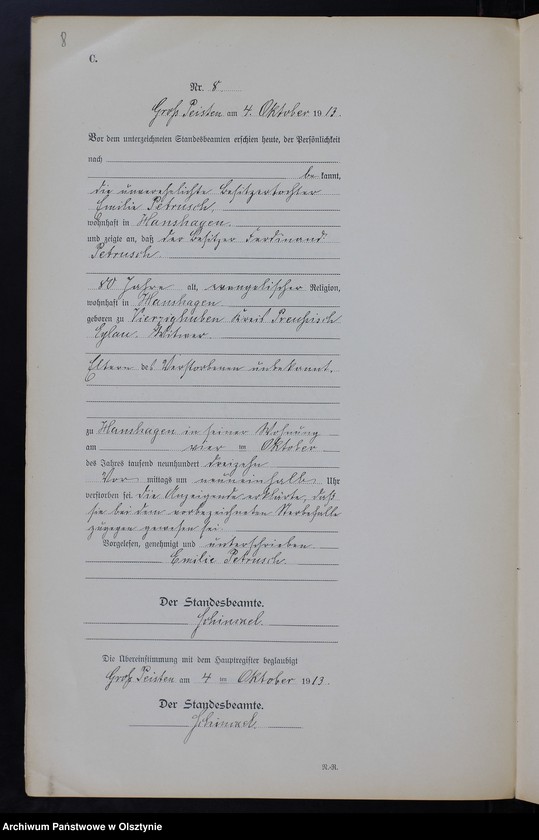 8
C.
Nr. 8
Groß Peisten am 4. Oktober 1913.
Vor dem unterzeichneten Standesbeamten erschien heute, der Persönlichkeit
nach
be kannt,
die unverehelichte Besitzertochter
Emilie Petrusch,
wohnhaft in Hanshagen.
und zeigte an, daß der Besitzer Ferdinand
Petrusch
80 Jahre alt, evangelischer Religion,
wohnhaft in Hanshagen
geboren zu Vierzighuben Kreis Preußisch
Eylau. Witwer.
Eltern des Verstorbenen unbekannt.
zu Hanshagen in seiner Wohnung
am vier ten Oktober
des Jahres tausend neunhundert dreizehn
Vor mittags um neuneinhalb Uhr
verstorben sei. Die Anzeigende erklärte, daß
sie bei dem vorbezeichneten Sterbefalle
zugegen gewesen sei
Vorgelesen, genehmigt und unterschrieben
Emilie Petrusch.
Der Standesbeamte.
Schimael.
Die Übereinstimmung mit dem Hauptregister beglaubigt
Groß Peisten am 4 ten Oktober 1913.
Der Standesbeamte.
Schimael.
R.-R.
Archiwum Państwowe w Olsztynie